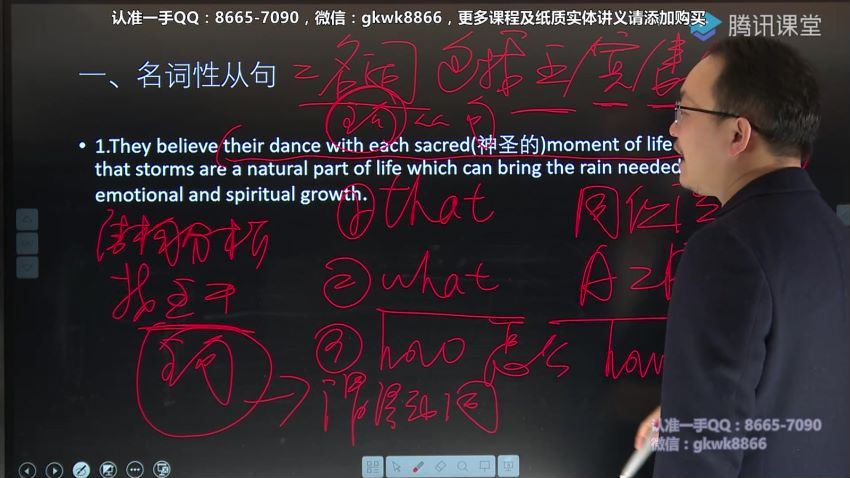 认准一手QQ：8665-7090，微信：gkwk8866，更多课程及纸质实体讲义请添加购买
腾讯课堂
一、名词性从句 = 名词 包括 主/宾/表
主句 << 句
• 1.They believe their dance with each sacred(神圣的)moment of life
that storms are a natural part of life which can bring the rain needed
emotional and spiritual growth.
① that 同位语
结构分析
② what A=
找主干
③ how 怎么 how
主句
谓语动词
认准一手QQ：8665-7090
微信：gkwk8866